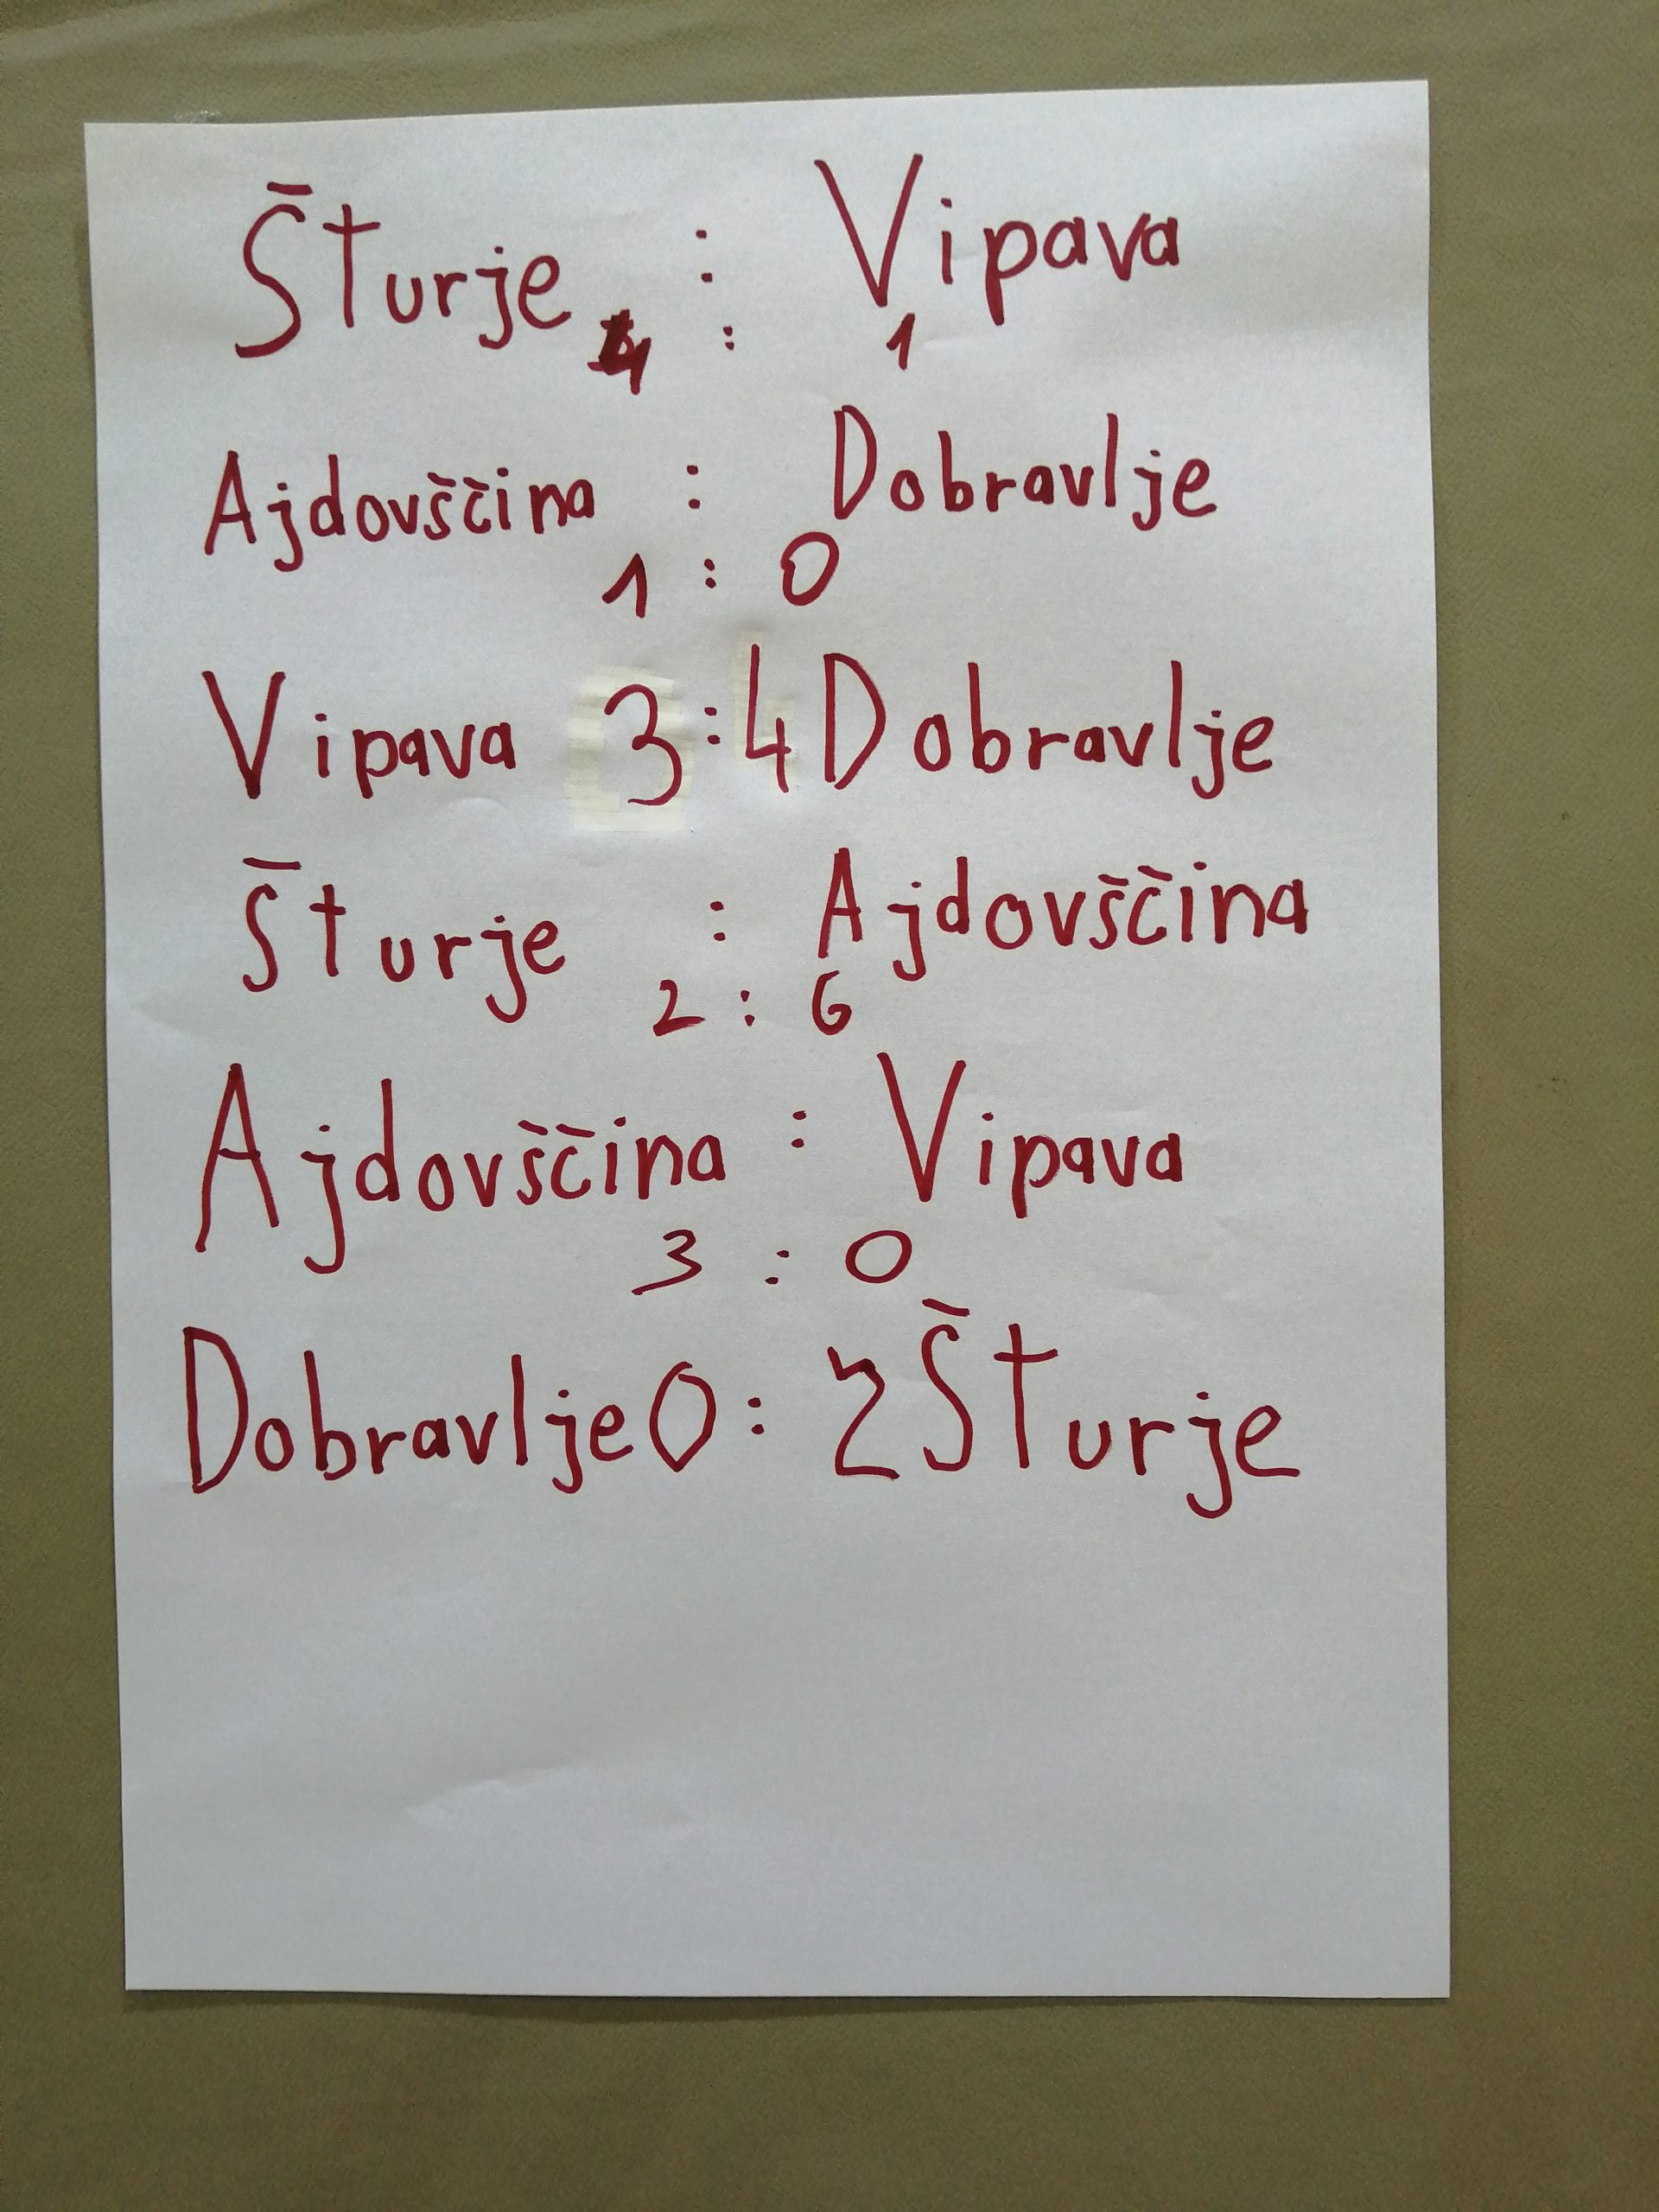 Šturje : Vipava
4 : 1
Ajdovščina : Dobravlje
1 : 0
Vipava 3:4 Dobravlje
Šturje : Ajdovščina
2 : 6
Ajdovščina : Vipava
3 : 0
Dobravlje 0 : 2 Šturje